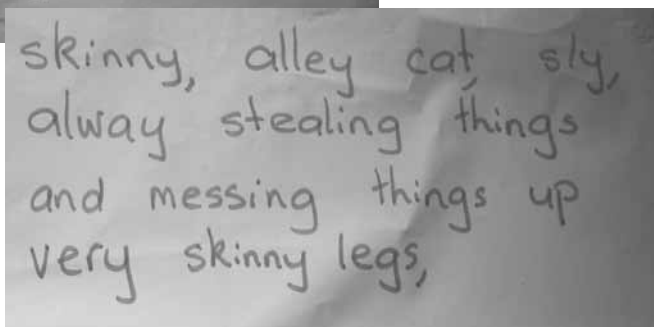 skinny, alley cat, sly,
alway stealing things
and messing things up
very skinny legs,